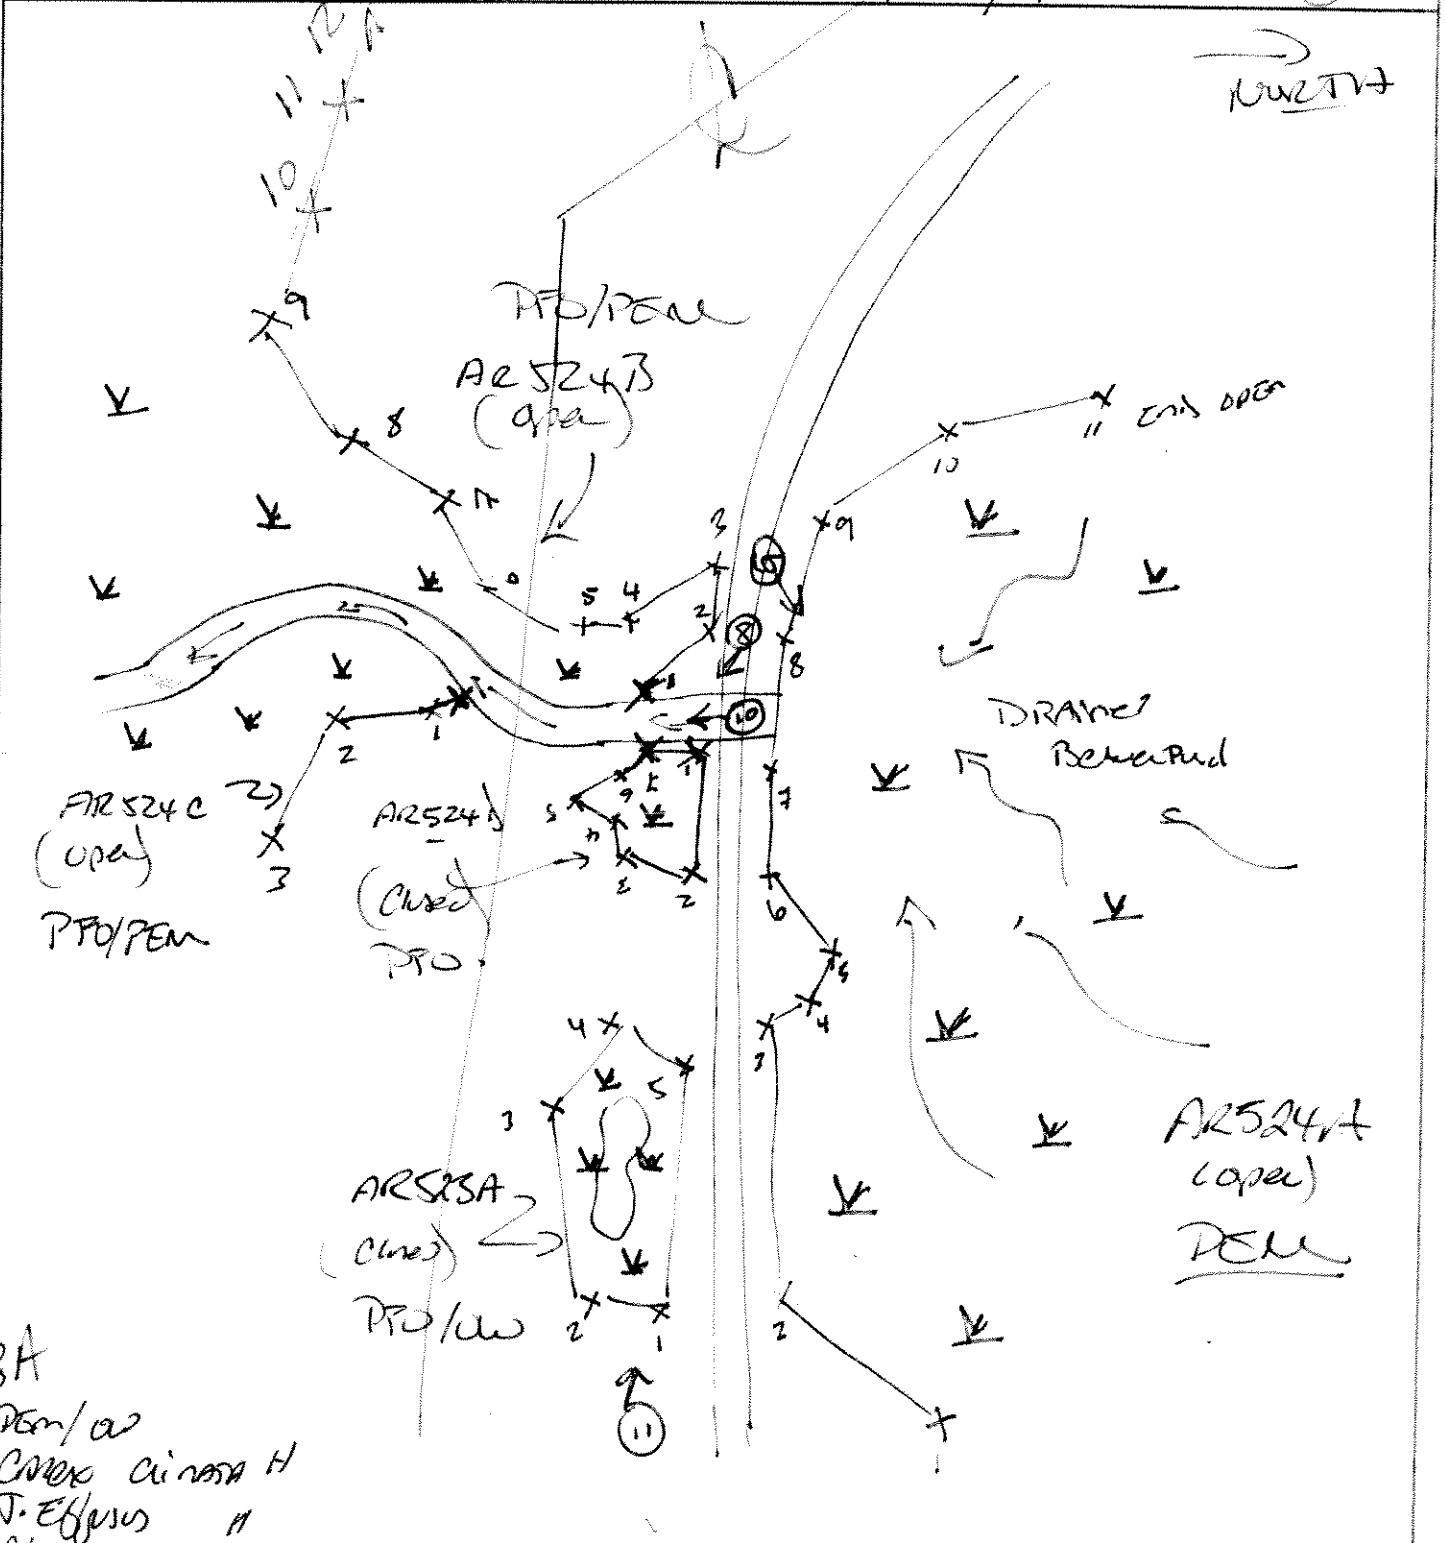 NORTH
12
11
10
9
8
7
PFO/PEM
AR524B
(open)
5
4
3
2
1
9
8
10
11
END OPEN
9
8
10
25
DRAINED
Beaver Pond
1
2
3
AR524C
(open)
PFO/PEM
AR524D
(Closed)
PFO
1
2
4
5
6
7
6
5
4
3
2
1
4
5
3
2
1
AR523A
(Closed)
PFO/OW
11
AR524A
(open)
PEM
3A
PEM/OW
Carex crinata H
J. Effusus "